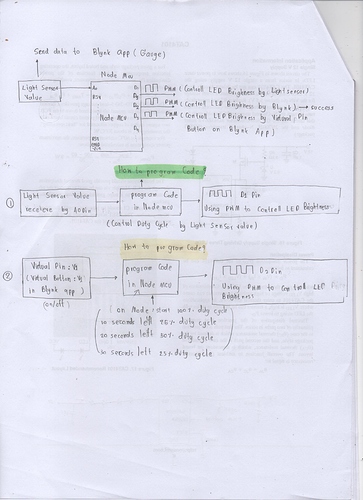 Send data to Blynk App (Gauge)
Node Mcu
Light Sensor
Value
A0
RSV
D1
D2
D3
Node MCU
PWM (Controll LED Brighness by Light sensor)
PWM (Controll LED Brighness by Blynk) → success
PWM (Controll LED Brighness by Virtual Pin
Button on Blynk App)
How to program Code?
① Light Sensor Value
receive by A0 Pin
program Code
in Node mcu
D1 Pin
Using PWM to Controll LED Brighness
(Control Duty Cycle by Light sensor value)
How to program Code?
② Virtual Pin : V1
(Virtual Button : V1
in Blynk app)
(on/off)
program Code
in Node MCU
D3 Pin
Using PWM to Controll LED
Brighness
on Mode : start 100% duty cycle
10 seconds left 75% duty cycle
20 seconds left 50% duty cycle
30 seconds left 25% duty cycle